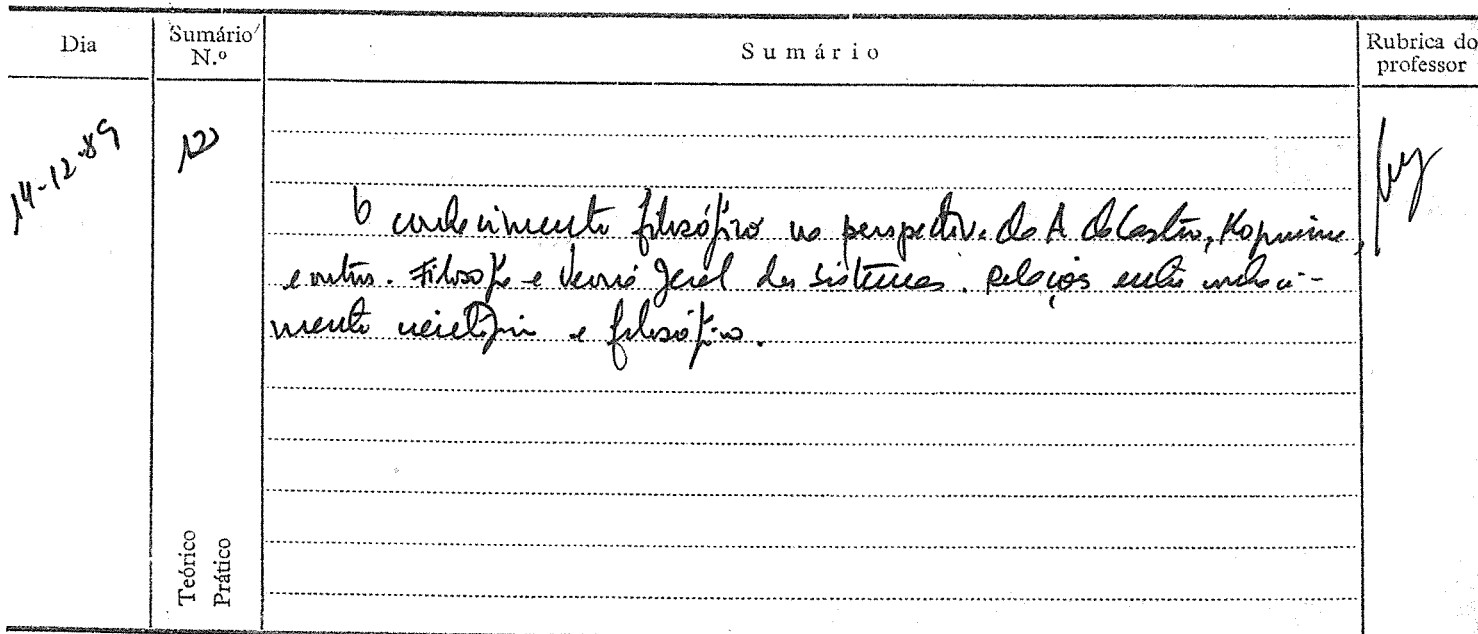 Dia
Sumário N.º
Sumário
Rubrica do professor
14-12-89
12
O conhecimento filosófico na perspectiva de A de Castro, Kopnine,
e outros. Filosofia e teoria geral dos sistemas. Relações entre conheci-
mento científico e filosófico.
Teórico
Prático